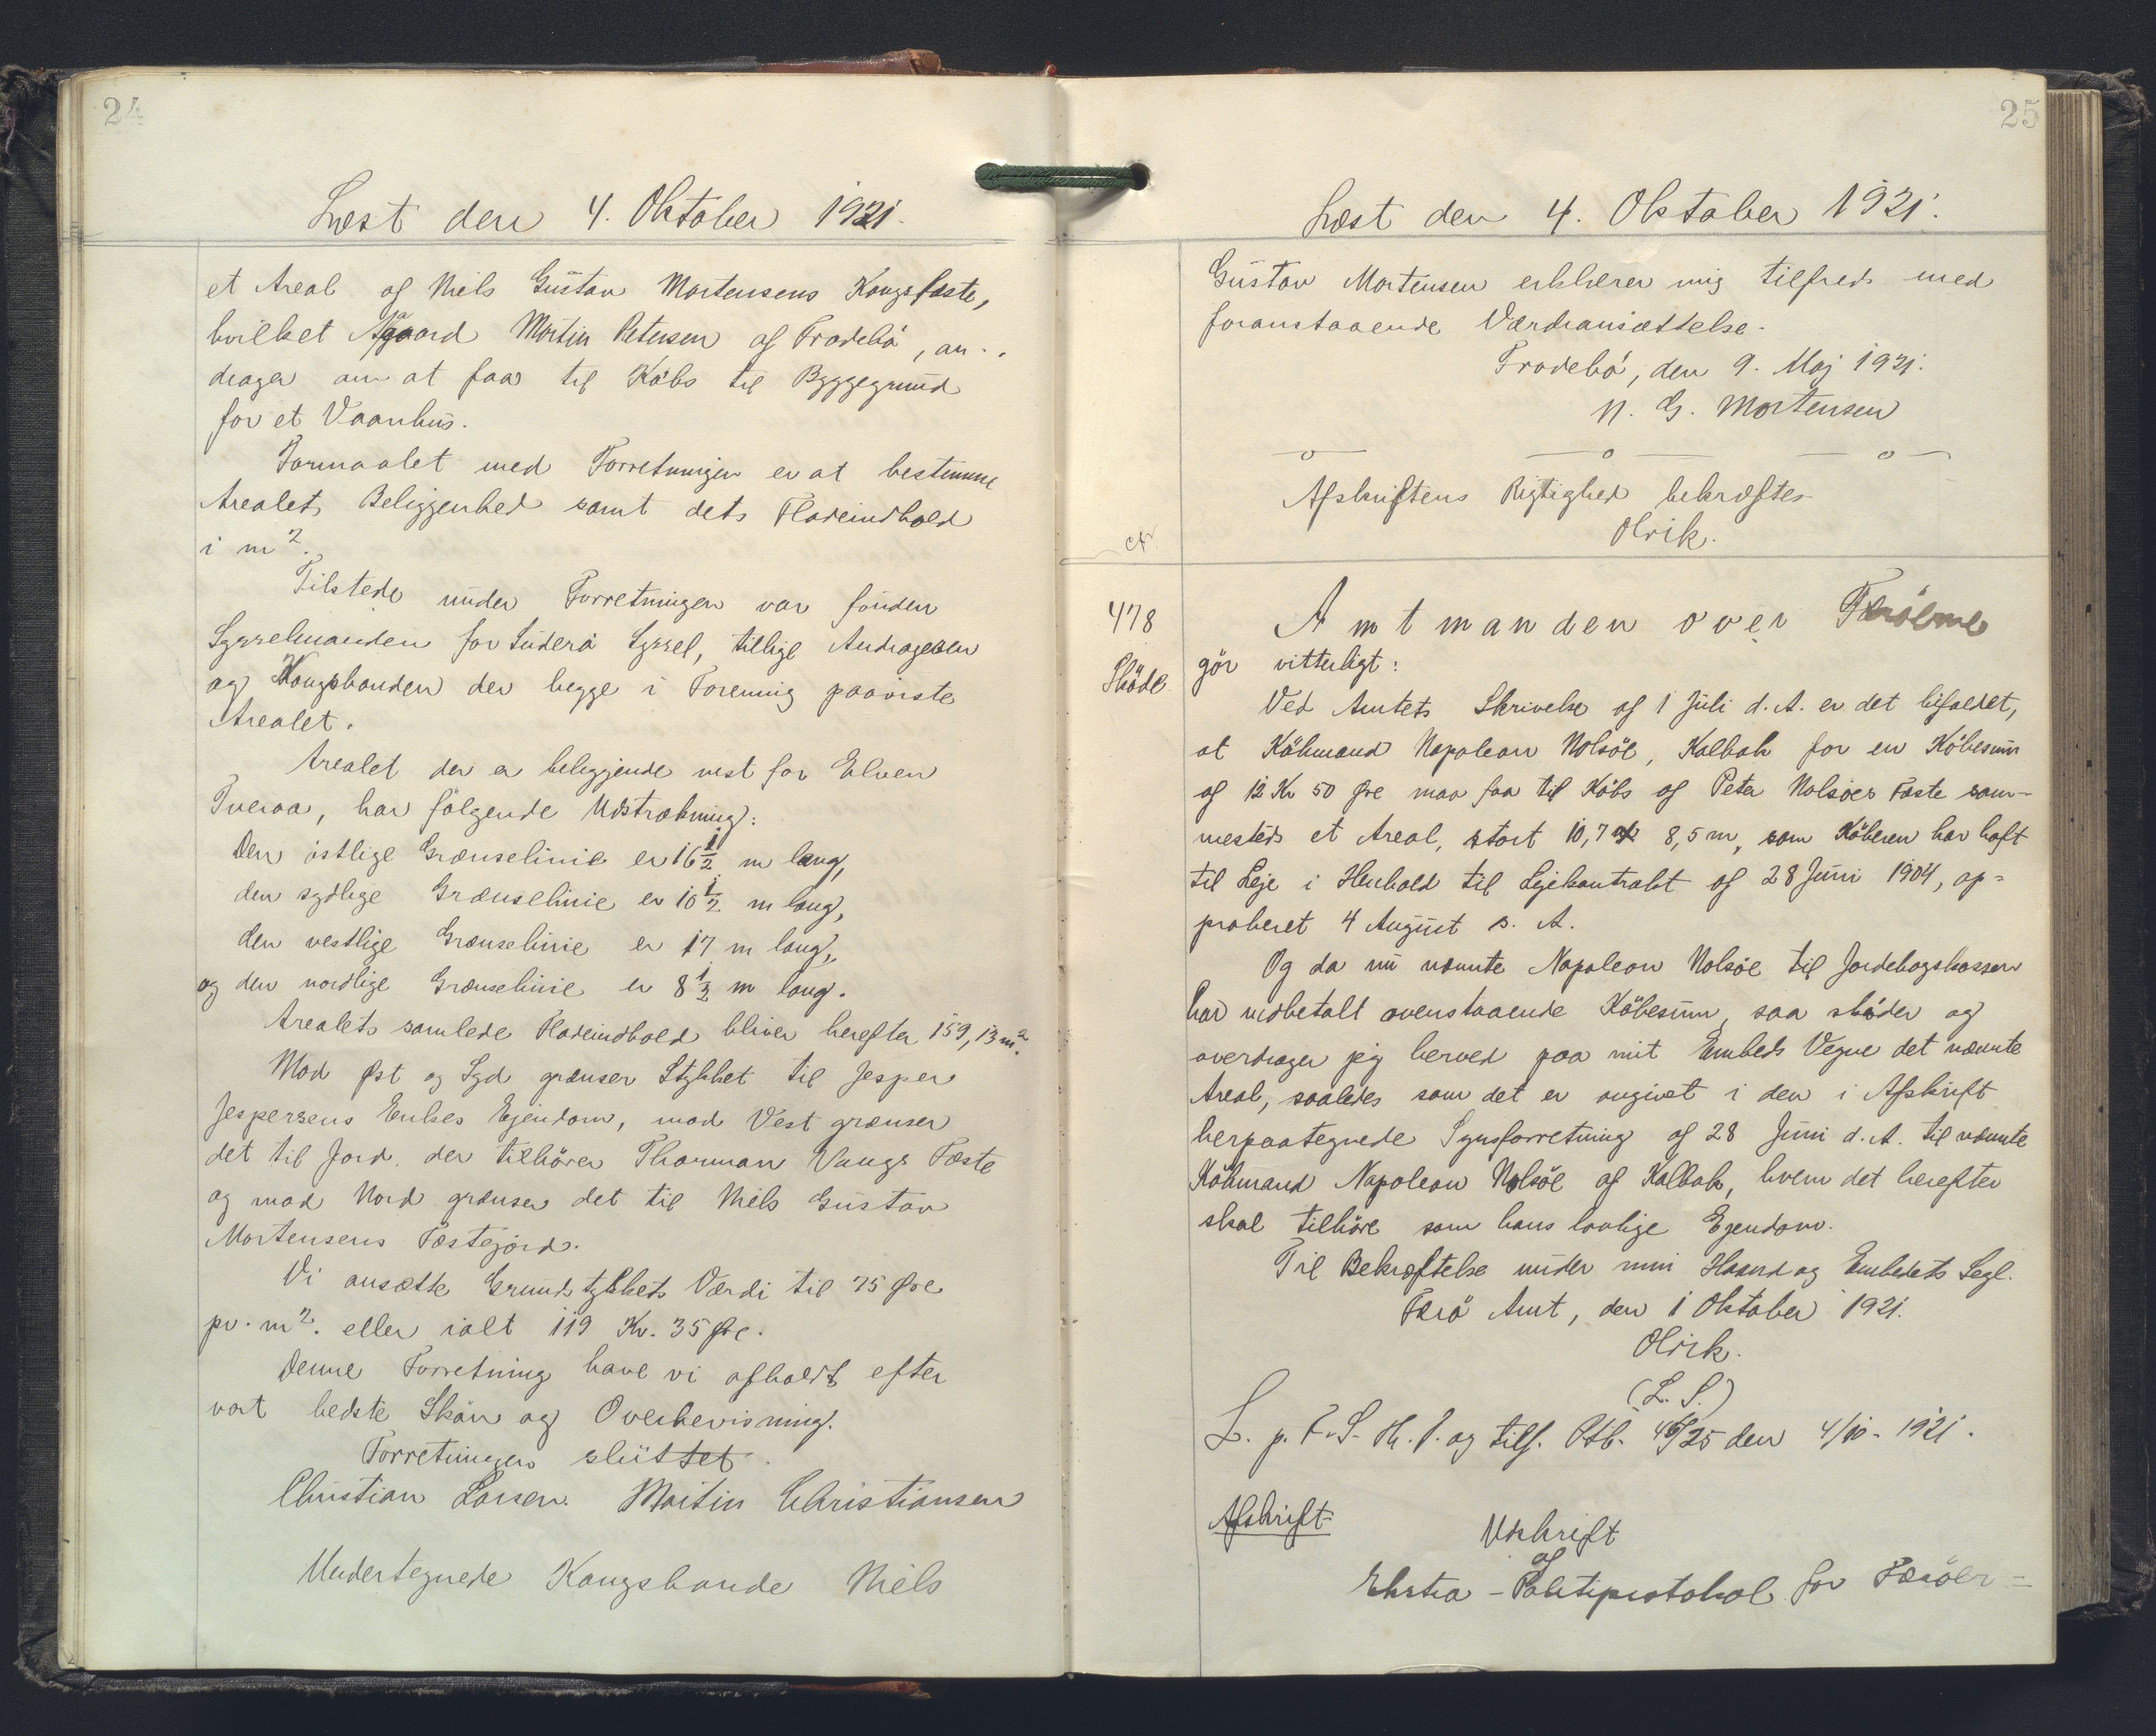 24
Læst den 4. Oktober 1921.
et Areal af Niels Gustav Mortensens Kongsfæste,
hvilket Mortin Petersen af Frodebö, an-
drager om at faa til Köbs til Byggegrund
for et Vaanhus.
Formaalet med Forretningen er at bestemme
Arealets Beliggenhed samt dets Fladeindhold
i m2.
Tilstede under Forretningen var foruden
Sysselmanden for Suderö Syssel, tillige Andrageren
og Kongsbonden der begge i Forening paaviste
Arealet.
Arealet der er beliggende vest for Elven
Tveraa, har fölgende Udstrækning:
Den östlige Grænselinie er 16 1/2 m lang,
den sydlige Grænselinie er 10 1/2 m lang,
den vestlige Grænselinie er 17 m lang,
og den nordlige Grænselinie er 8 1/2 m lang.
Arealets samlede Fladeindhold bliver herefter 159,13 m2.
Mod Øst og Syd grænser Stykket til Jesper
Jespersens Enkes Ejendom, mod Vest grænser
det til Jord, der tilhörer Thorman Vangs Fæste
og mod Nord grænser det til Niels Gustav
Mortensens Fæstejord.
Vi ansætte Grundstykkets Værdi til 75 Øre
pr. m2. eller ialt 119 Kr. 35 Øre.
Denne Forretning have vi afholdt efter
vort bedste Skön og Overbevisning.
Forretningen sluttet.
Christian Larsen. Martin Christiansen
Undertegnede Kongsbonde Niels
25
Læst den 4. Oktober 1921.
Gustav Mortensen erklærer mig tilfreds med
foranstaaende Værdiansættelse.
Frodebö, den 9. Maj 1921.
N. G. Mortensen
Afskriftens Rigtighed bekræftes
Olrik.
cfr
478
Sköde
Amtmanden over Færöerne
gör vitterligt:
Ved Amtets Skrivelse af 1 Juli d. A. er det bifaldet,
at Köbmand Napoleon Nolsöe, Kalbak for en Köbesum
af 12 Kr 50 Øre maa faa til Köbs af Peter Nolsöes Fæste sam-
mesteds et Areal, stort 10,7 x 8,5 m, som Köberen har haft
til Leje i Henhold til Lejekontrakt af 28 Juni 1904, ap-
proberet 4 August s. A.
Og da nu nævnte Napoleon Nolsöe til Jordebogskassen
har indbetalt ovenstaaende Köbesum, saa sköder og
overdrager jeg herved paa mit Embeds Vegne det nævnte
Areal, saaledes som det er angivet i den i Afskrift
herpaategnede Synsforretning af 28 Juni d. A. til nævnte
Köbmand Napoleon Nolsöe af Kalbak, hvem det herefter
skal tilhöre som hans lovlige Ejendom.
Til Bekræftelse under min Haand og Embedets Segl.
Færö Amt, den 1 Oktober 1921.
Olrik.
(L. S.)
L. p. F. S. H. P. og tilf. Ptb. 46/25 den 4/10 - 1921.
Afskrift
Udskrift
af
Ekstra-Politiprotokol for Færöer-